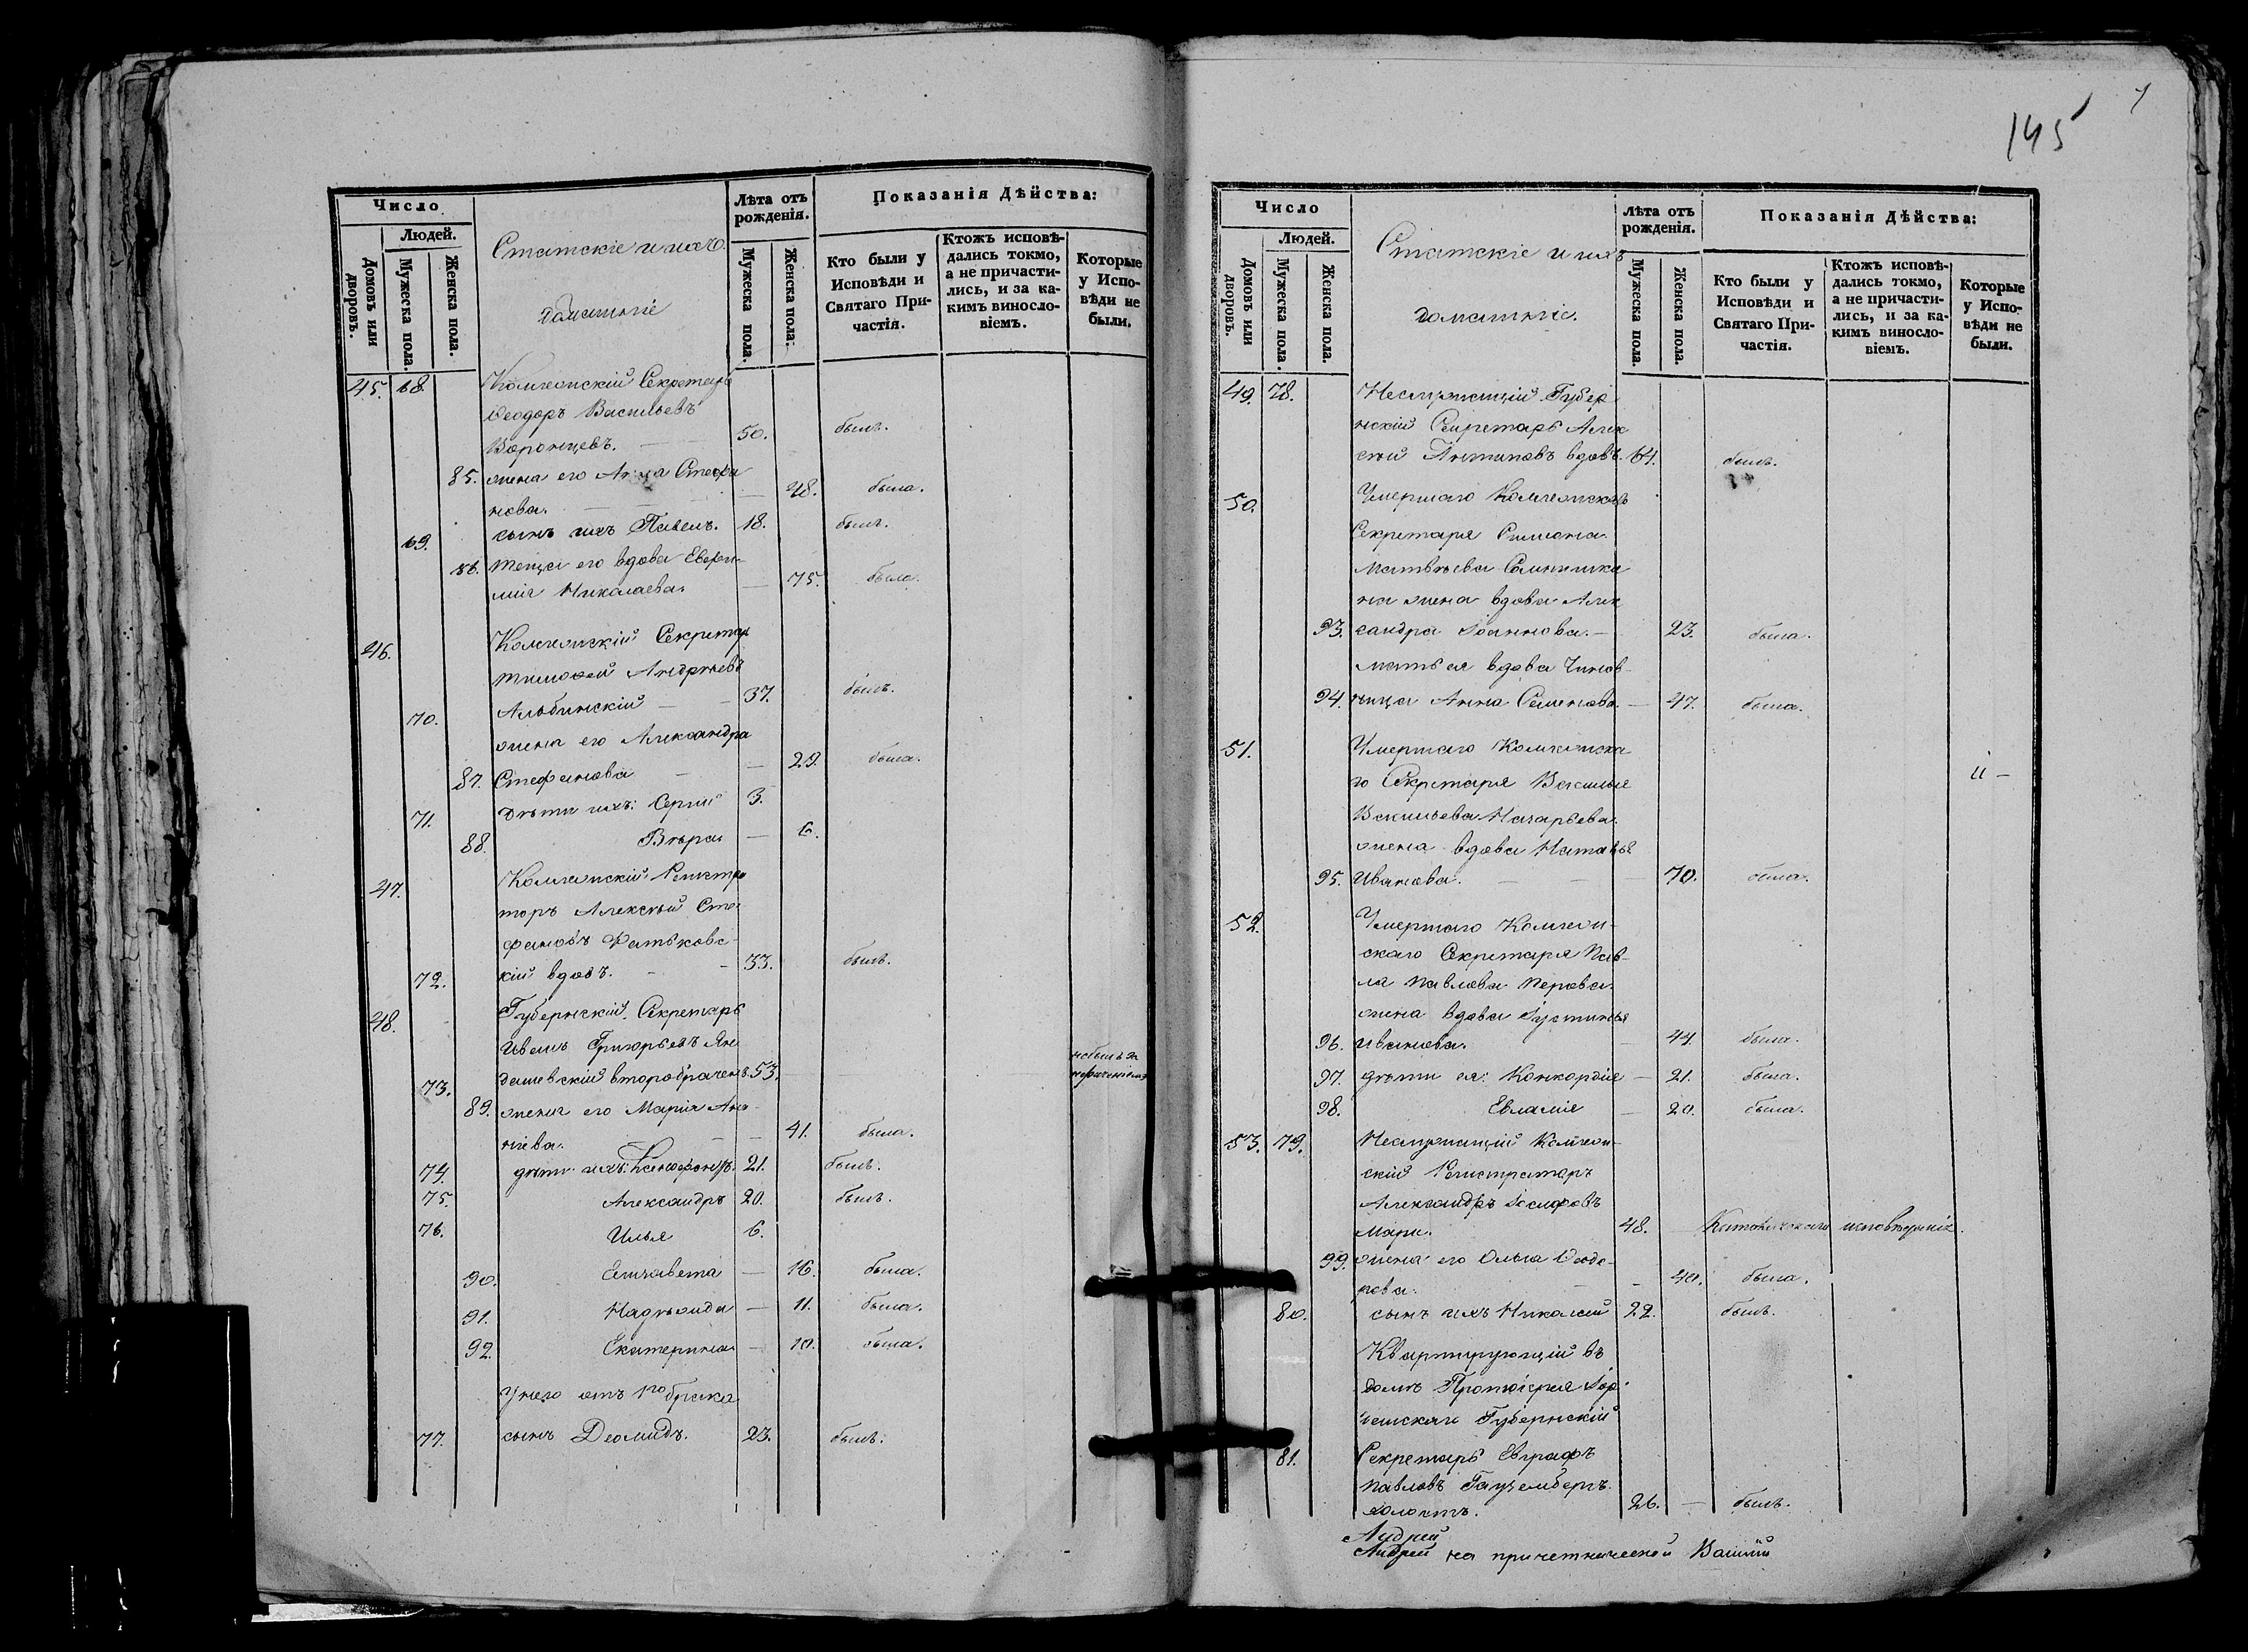 145
Число
Людей.
Домовъ или дворовъ.
Мужеска пола.
Женска пола.
Статскіе и ихъ
домашніе
Лѣта отъ рожденія.
Мужеска пола.
Женска пола.
Показанія Дѣйства:
Кто были у Исповѣди и Святаго Причастія.
Ктожъ исповѣдались токмо, а не причастились, и за какимъ винословіемъ.
Которые у Исповѣди не были.
45. 68. Коллежскій Секретарь
Ѳеодоръ Васильевъ
Воронцевъ. 50. былъ.
85. жена его Анна Стефа
нова. 48. была.
69. сынъ ихъ Павелъ. 18. былъ.
86. теща его вдова Евфи-
мія Николаева. 75. была.
46. Коллежскій Секретар
Тимоѳей Андреевъ
70. Альбинскій 37. былъ.
жена его Александра
87. Стефанова 29. была.
71. дѣти ихъ: Сергій 3.
88. Вѣра 6.
47. Коллежскій Регистра
торъ Алексѣй Сте-
фановъ Фатьковс-
72. кій вдовъ. 33. былъ.
48. Губернскій Секретарь
Иванъ Григорьевъ Ян
73. дашевскій второбраченъ. 53. небылъ за
нераченіемъ
89. жена его Марія Ана-
ніева. 41. была.
74. дѣти ихъ: Ксенофонтъ. 21. былъ.
75. Александръ 20. былъ.
76. Илья 6.
90. Елизавета 16. была.
91. Надѣжда 11. была.
92. Екатерина 10. была.
У него отъ 1го брака
77. сынъ Деомидъ. 23. былъ.
Число
Людей.
Домовъ или дворовъ.
Мужеска пола.
Женска пола.
Статскіе и ихъ
домашніе.
Лѣта отъ рожденія.
Мужеска пола.
Женска пола.
Показанія Дѣйства:
Кто были у Исповѣди и Святаго Причастія.
Ктожъ исповѣдались токмо, а не причастились, и за какимъ винословіемъ.
Которые у Исповѣди не были.
49. 78. Неслужащій Губер
нскій Секретарь Алек
сѣй Антиповъ вдовъ. 64. былъ.
50. Умершаго Коллежскаго
Секретаря Симеона
Матвѣева
жена вдова Алек
93. сандра Іоаннова. 23. была.
мать ея вдова Чинов-
94. ница Анна Семенова. 47. была.
51. Умершаго Коллежска
го Секретаря Василья
Васильева Назарьева
жена вдова Наталья
95. Иванова. 70. была.
52. Умершаго Коллеж-
скаго Секретаря Пав-
ла Павлова Перова
жена вдова Іустинья
96. Иванова. 44. была.
97. дѣти ея: Конкордія 21. была.
98. Евлалія 20. была.
53. 79. Неслужащій Коллеж-
скій Регистраторъ
Александръ Іосифовъ
Мари. 48. Католическаго исповѣданія.
99. жена его Ольга Ѳеодо-
рова. 40. была.
80. сынъ ихъ Николай 22. былъ.
Квартирующій въ
домѣ Протоіерея
Губернскій
81. Секретарь Евграфъ
Павловъ Гаузембергъ
холостъ. 26. былъ.
Андрей
Андрей на причетнической